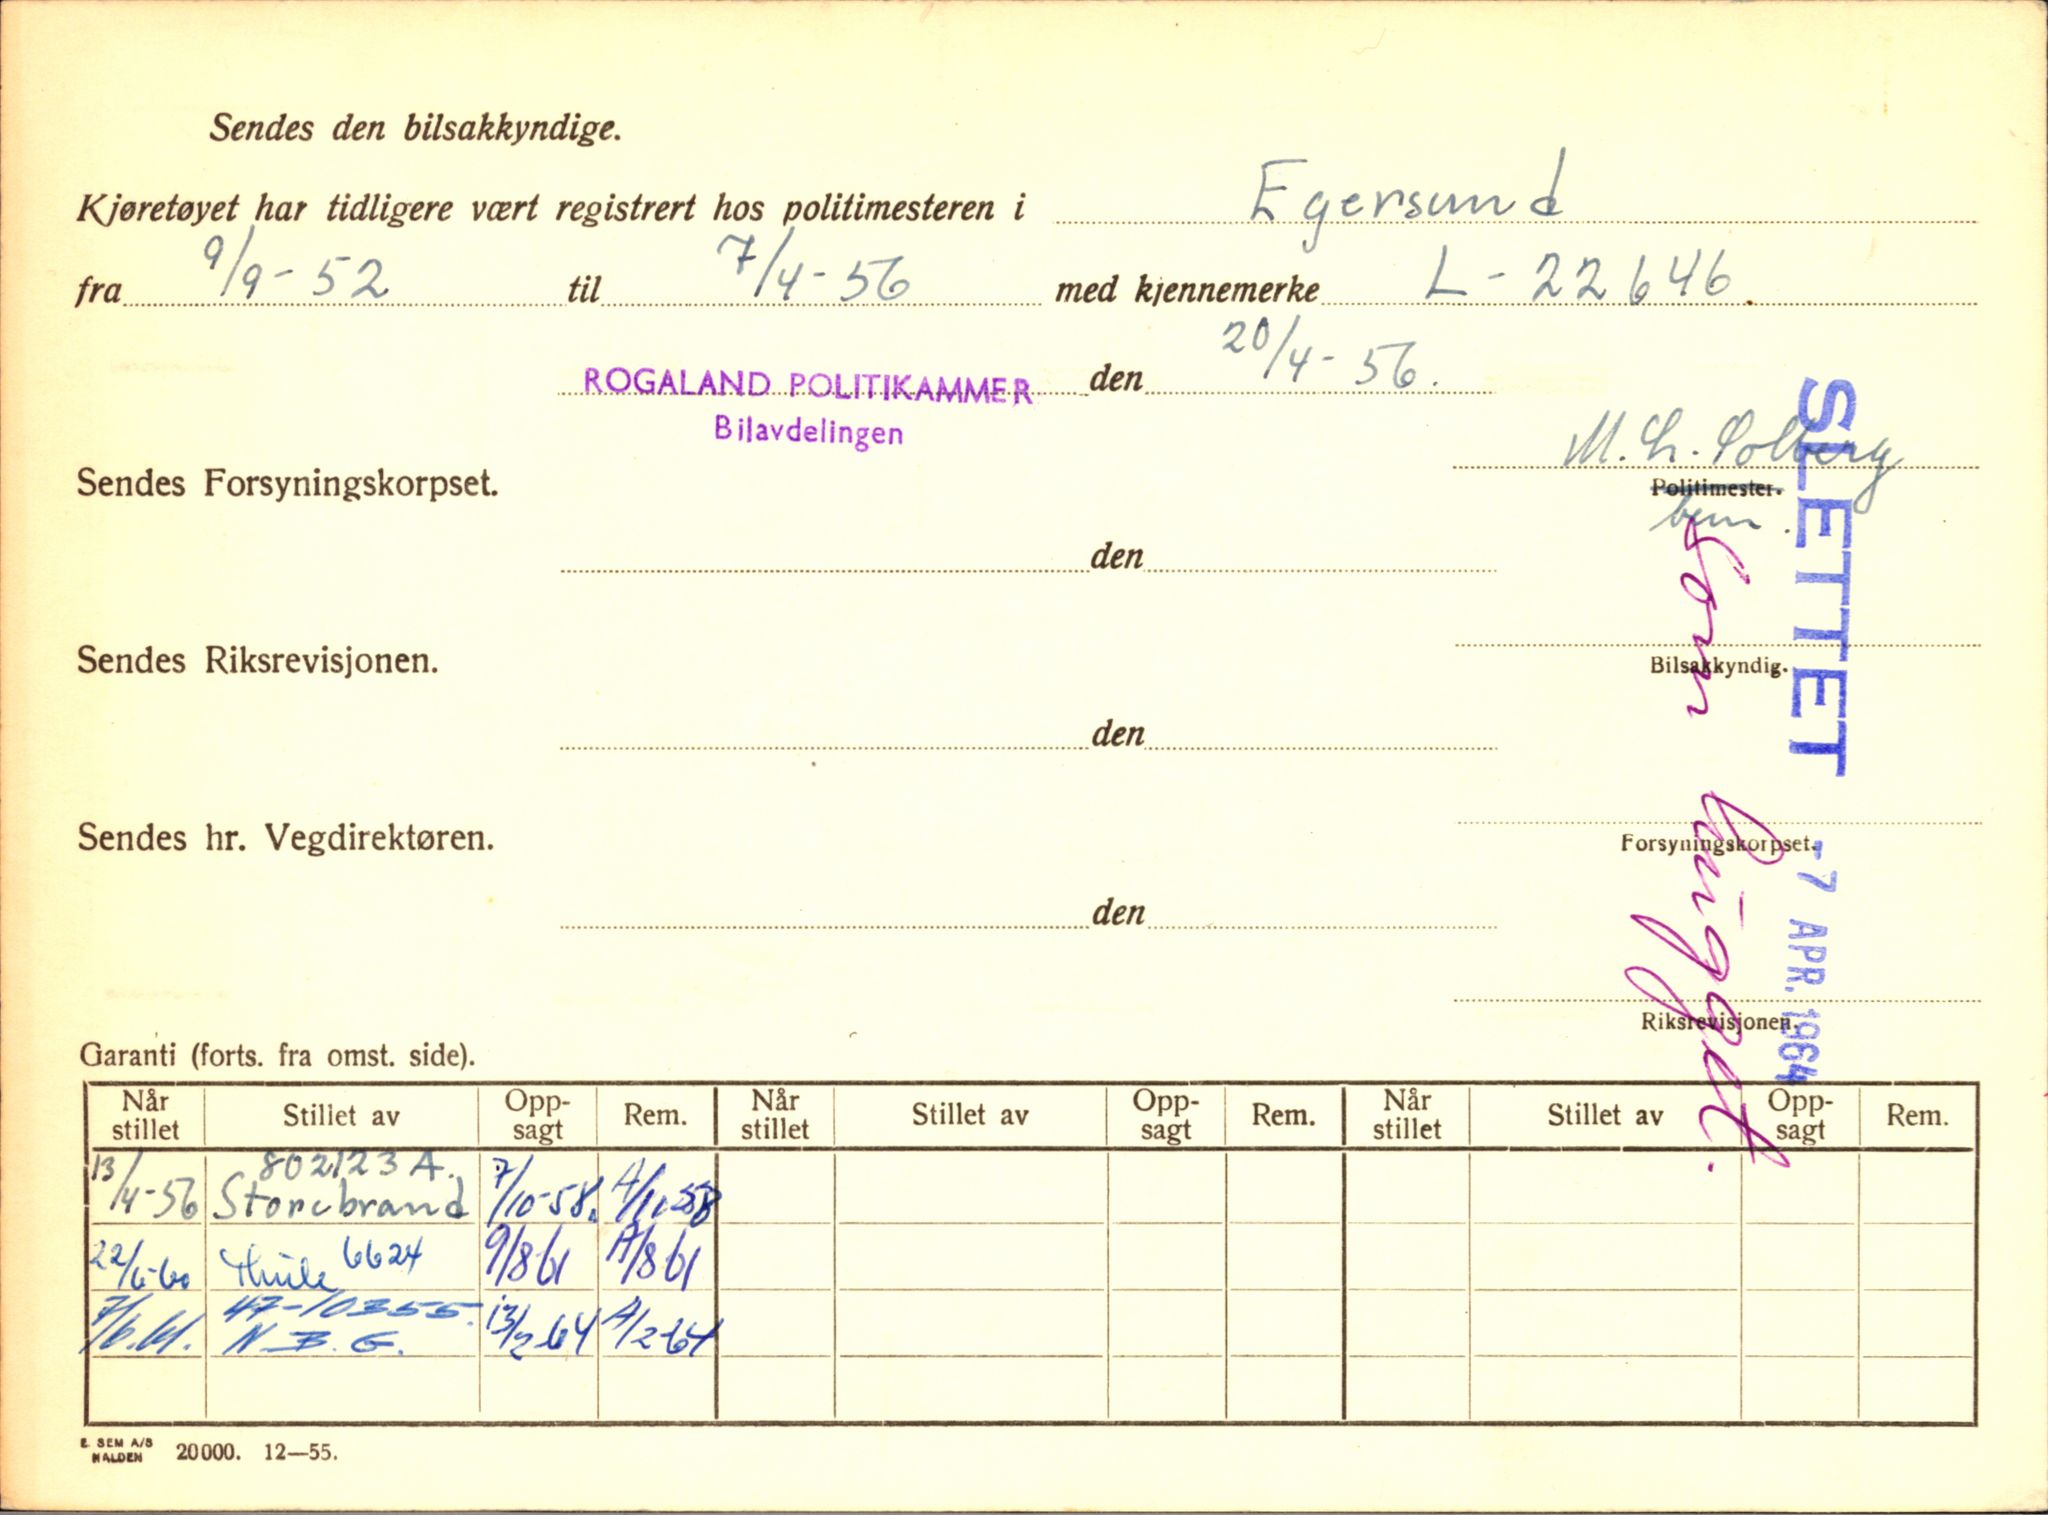 Sendes den bilsakkyndige.
Kjøretøyet har tidligere vært registrert hos politimesteren i Egersund
fra 9/9-52 til 7/4-56 med kjennemerke L-22646.
ROGALAND POLITIKAMMER den 20/4-56.
Bilavdelingen
M. Th. Solberg
Sendes Forsyningskorpset.
Politimester.
bem.
den
Sendes Riksrevisjonen.
Bilsakkyndig.
den
Sendes hr. Vegdirektøren.
Forsyningskorpset.
den
Riksrevisjonen.
SLETTET -7 APR. 1964
Som hugget.
Garanti (forts. fra omst. side).
Når stillet Stillet av Opp-sagt Rem. Når stillet Stillet av Opp-sagt Rem. Når stillet Stillet av Opp-sagt Rem.
13/4-56 802123 A. Storebrand 7/10-58. A/11-58
22/6-60 Thule 6624 9/8 61 A/8 61
7/6.61. 47-10355. N.B.G. 13/2 64 A/2-64
E. SEM A/S
HALDEN 20000. 12—55.